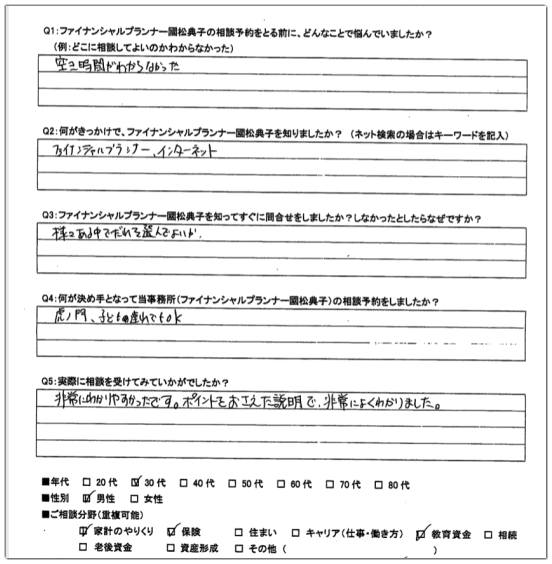 Q1:ファイナンシャルプランナー國松典子の相談予約をとる前に、どんなことで悩んでいましたか？
(例:どこに相談してよいのかわからなかった)
空き時間がわからなかった
Q2:何がきっかけで、ファイナンシャルプランナー國松典子を知りましたか？ (ネット検索の場合はキーワードを記入)
ファイナンシャルプランナー、インターネット
Q3:ファイナンシャルプランナー國松典子を知ってすぐに問合せをしましたか？しなかったとしたらなぜですか？
様々ある中でだれを選んでよいか.
Q4:何が決め手となって当事務所(ファイナンシャルプランナー國松典子)の相談予約をしましたか？
虎ノ門、子ども連れでもOK
Q5:実際に相談を受けてみていかがでしたか？
非常にわかりやすかったです。ポイントをおさえた説明で、非常によくわかりました。
■年代 □20代 ☑30代 □40代 □50代 □60代 □70代 □80代
■性別 ☑男性 □女性
■ご相談分野(重複可能)
☑家計のやりくり ☑保険 □住まい □キャリア(仕事・働き方) ☑教育資金 □相続
□老後資金 □資産形成 □その他 ( )